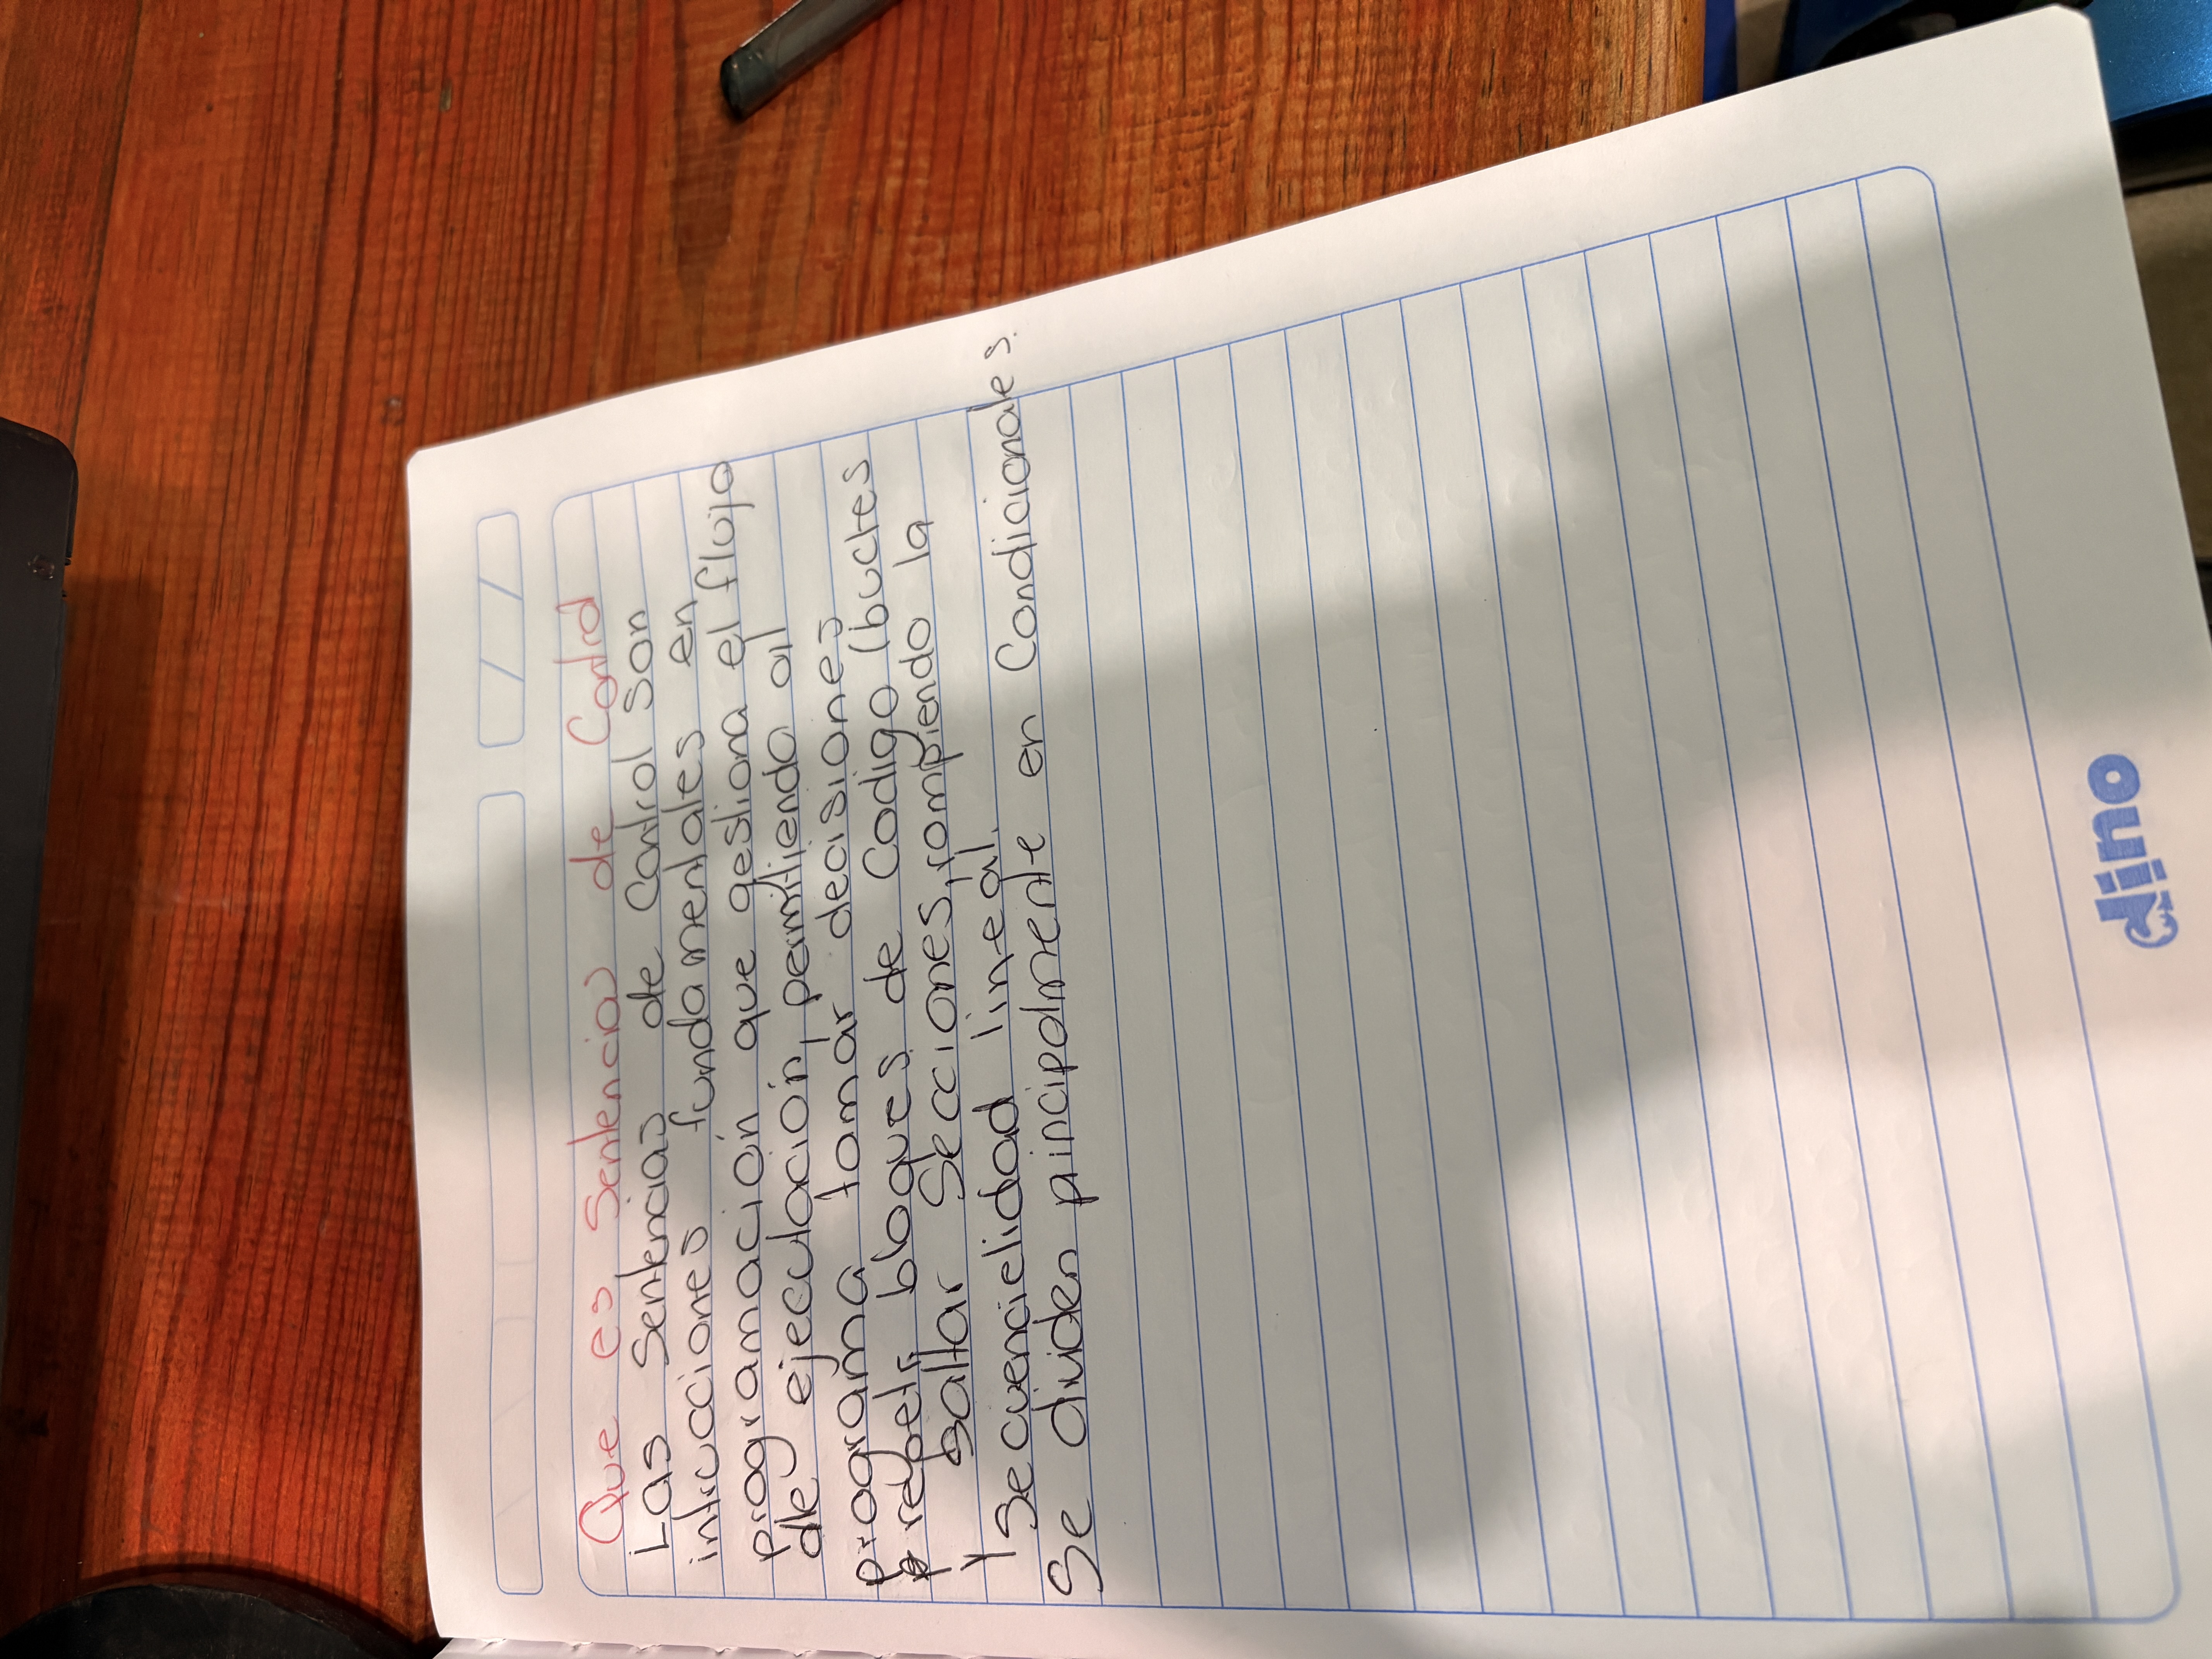 Que es Sentencias de Control
Las Sentencias de Control Son
intrucciones fundamentales en
programación que gestiona el flujo
de ejeculación, permitiendo al
programa tomar decisiones
repetir bloques de Codigo (bucles
y saltar Secciones, rompiendo la
Secuencielidad lineal.
Se dividen pincipalmente en Condicionales.
dino